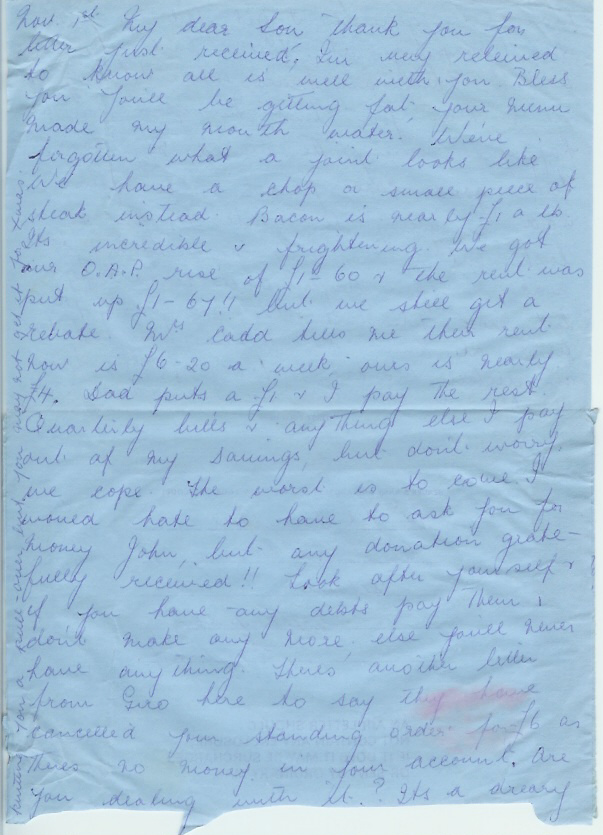 Nov 1st. My dear Son thank you for
letter just received, I'm very relieved
to know all is well with you. Bless
you you'll be getting fat your menu
made my mouth water. We've
forgotten what a joint looks like
We have a chop or small piece of
steak instead. Bacon is nearly £1 a lb.
Its incredible & frightening. We got
our O.A.P. rise of £1-60 & the rent was
put up £1-67!! but we still get a
rebate. Mrs Cadd tells me their rent
now is £6-20 a week ours is nearly
£4. Dad puts a £1 & I pay the rest.
Quarterly bills & anything else I pay
out of my savings, but don't worry,
we cope. The worst is to come I
would hate to have to ask you for
money John, but any donation grate-
fully received!! Look after yourself &
if you have any debts pay them &
don't make any more else you'll never
have anything. There's another letter
from Giro here to say they have
cancelled your standing order for £6 as
theres no money in your account. Are
you dealing with it? Its a dreary
you a but you may not get it for